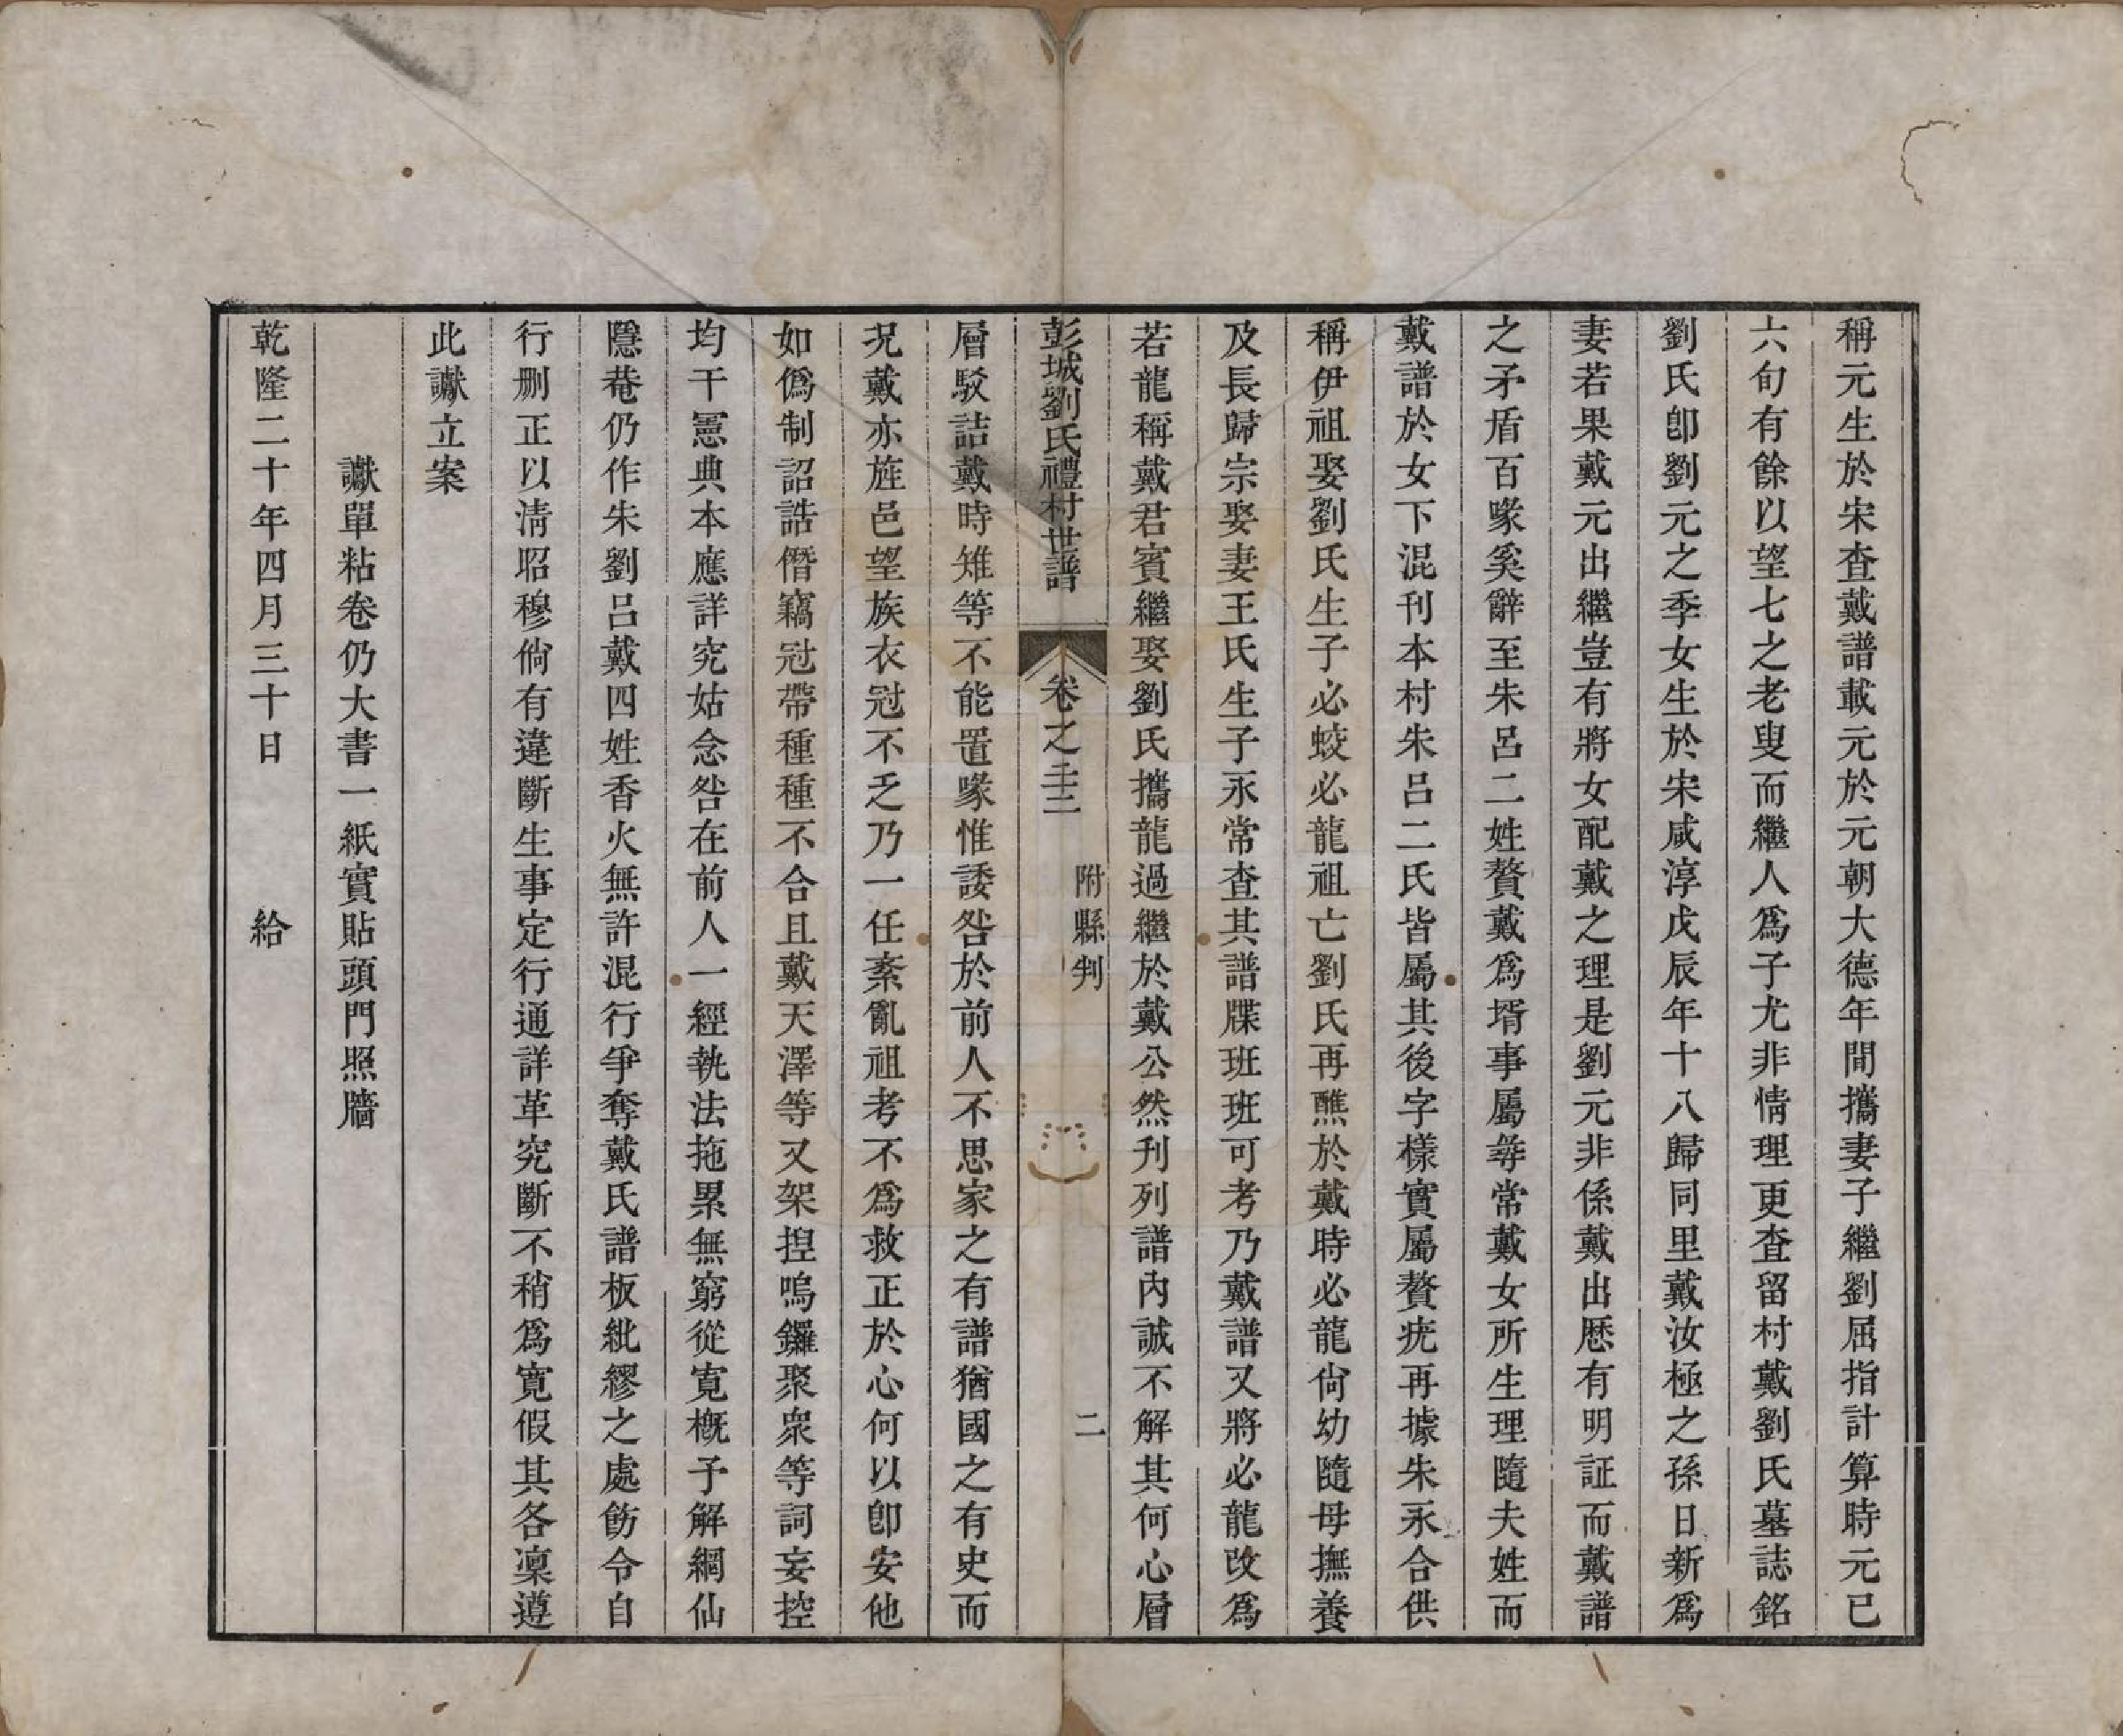 稱元生於宋查戴譜載元於元朝大德年間攜妻子繼劉屈指計算時元已
六旬有餘以望七之老叟而繼人爲子尤非情理更查留村戴劉氏墓誌銘
劉氏卽劉元之季女生於宋咸淳戊辰年十八歸同里戴汝極之孫日新爲
妻若果戴元出繼豈有將女配戴之理是劉元非係戴出歷有明証而戴譜
之矛盾百喙奚辭至朱呂二姓贅戴爲壻事屬尋常戴女所生理隨夫姓而
戴譜於女下混刊本村朱呂二氏皆屬其後字樣實屬贅疣再據朱永合供
稱伊祖娶劉氏生子必蛟必龍祖亡劉氏再醮於戴時必龍尙幼隨母撫養
及長歸宗娶妻王氏生子永常查其譜牒班班可考乃戴譜又將必龍改爲
若龍稱戴君賓繼娶劉氏攜龍過繼於戴公然刋列譜內誠不解其何心層
彭城劉氏禮村世譜 卷之三二 附縣判 二
層駁詰戴時雉等不能置喙惟諉咎於前人不思家之有譜猶國之有史而
況戴亦旌邑望族衣冠不乏乃一任紊亂祖考不爲救正於心何以卽安他
如僞制詔誥僭竊冠帶種種不合且戴天澤等又架揑鳴鑼聚衆等詞妄控
均干憲典本應詳究姑念咎在前人一經執法拖累無窮從寬槪予解網仙
隱菴仍作朱劉呂戴四姓香火無許混行爭奪戴氏譜板紕繆之處飭令自
行刪正以淸昭穆倘有違斷生事定行通詳革究斷不稍爲寬假其各凜遵
此讞立案
讞單粘卷仍大書一紙實貼頭門照牆
乾隆二十年四月三十日 給